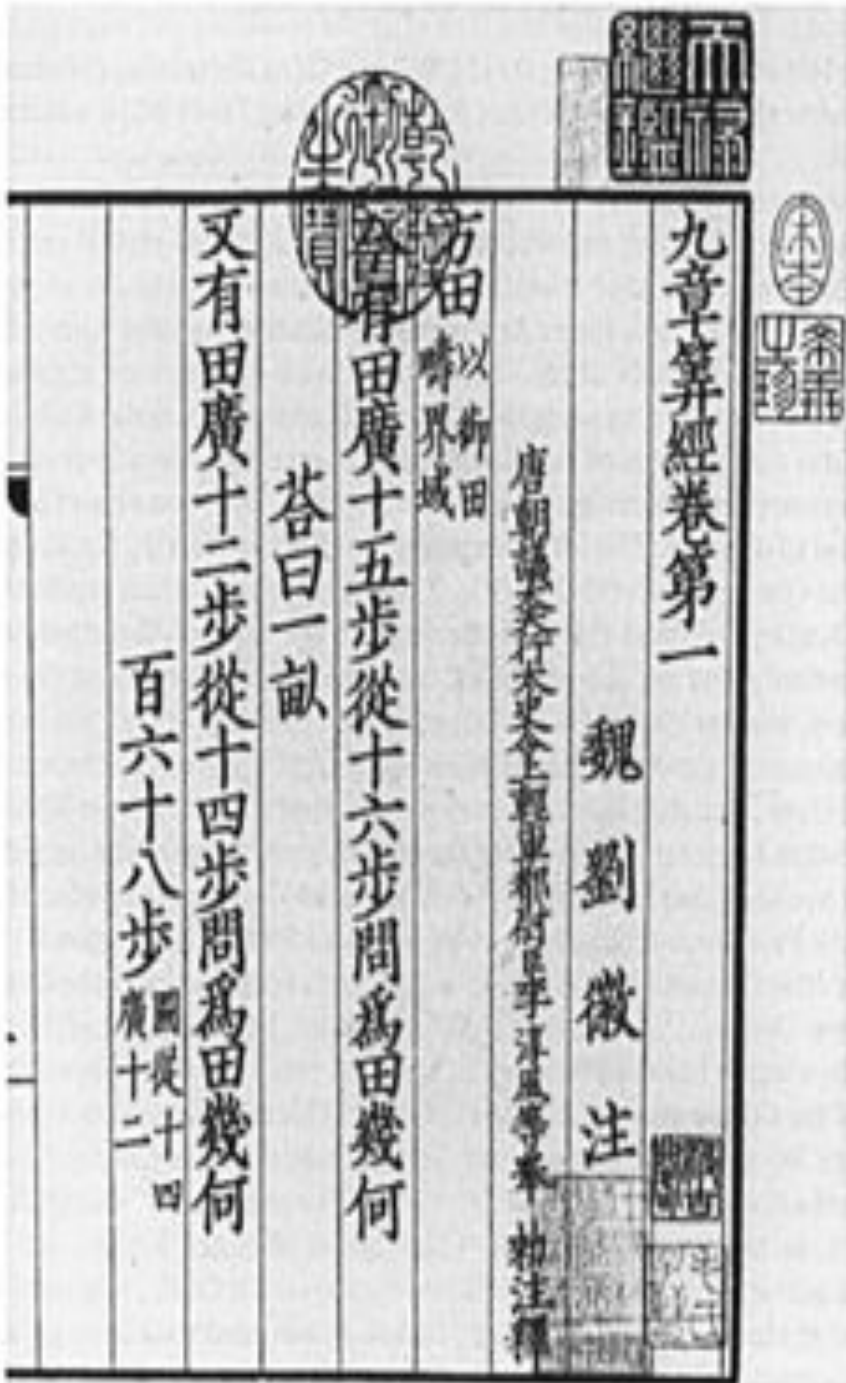 九章筭經卷第一
魏劉徽注
唐朝議大夫行太史令上輕車都尉臣李淳風等奉 勑注釋
方田以御田疇界域
今有田廣十五步從十六步問爲田幾何
荅曰一畝
又有田廣十二步從十四步問爲田幾何
百六十八步圖從十四廣十二
天禄繼鑑
乾隆御覽之寶